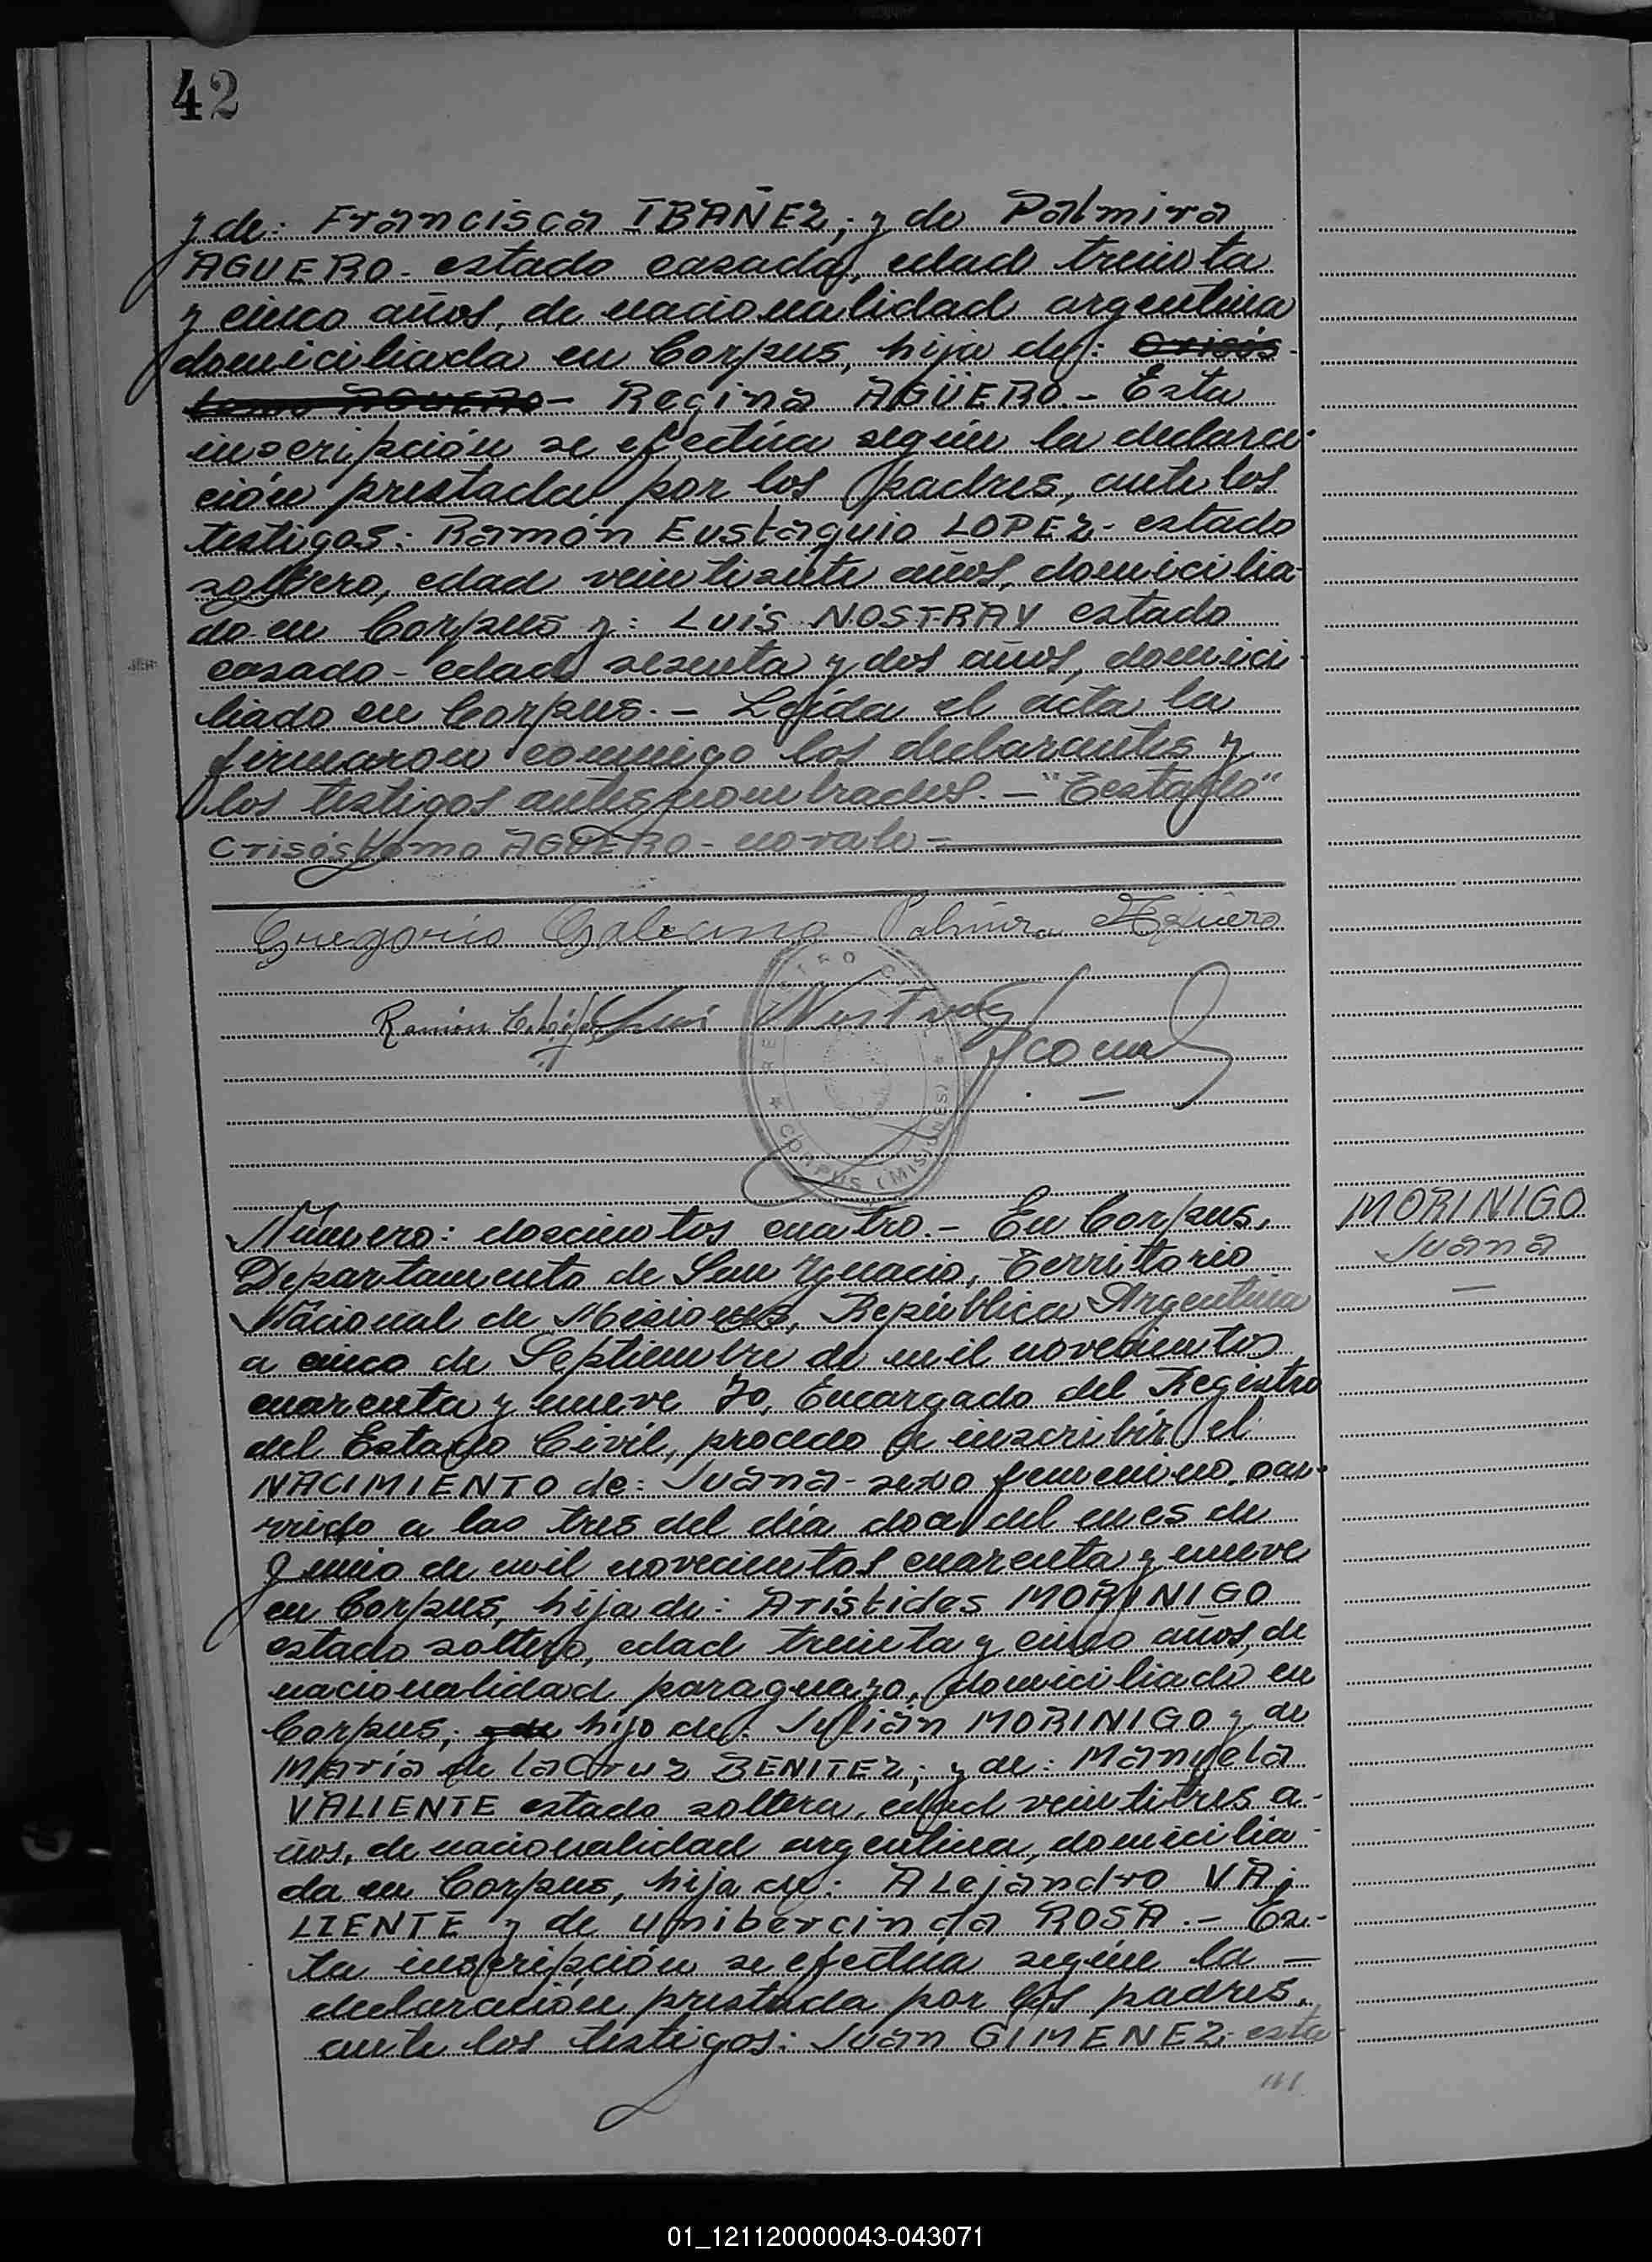 42
y de: Francisca IBAÑEZ; y de Palmira
AGUERO- estado casada, edad treinta
y cinco años, de nacionalidad argentina
domiciliada en Corpus, hija de: Crisós-
tomo AGUERO- Regina AGÜERO.- Esta
inscripción se efectúa según la declara-
ción prestada por los padres, ante los
testigos: Ramón Eustaquio LOPEZ- estado
soltero, edad veintisiete años, domicilia-
do en Corpus y: Luis NOSTRAY estado
casado- edad sesenta y dos años, domici-
liado en Corpus.- Leída el acta la
firmaron conmigo los declarantes y
los testigos antes nombrados.- "Testado"
Crisóstomo AGUERO- no vale-
Gregorio Galeano Palmira Agüero
Ramón E. López Luis Nostray
REGISTRO
CORPUS (MISIONES)
Número: doscientos cuatro.- En Corpus,
MORINIGO
Departamento de San Ygnacio, Territorio
Juana
Nacional de Misiones, República Argentina
a cinco de Septiembre de mil novecientos
cuarenta y nueve Yo, Encargado del Registro
del Estado Civil, procedo a inscribir el
NACIMIENTO de: Juana- sexo femenino, ocu-
rrido a las tres del día doce del mes de
Junio de mil novecientos cuarenta y nueve
en Corpus, hija de: Arístides MORINIGO
estado soltero, edad treinta y cinco años, de
nacionalidad paraguayo, domiciliado en
Corpus; y de hijo de: Julián MORINIGO y de
María de la Cruz BENITEZ; y de: Manuela
VALIENTE estado soltera, edad veintitres a-
ños, de nacionalidad argentina, domicilia-
da en Corpus, hija de: Alejandro VA-
LIENTE y de Unibercinda ROSA.- Es-
ta inscripción se efectúa según la-
declaración prestada por los padres,
ante los testigos: Juan GIMENEZ- esta-
01_121120000043-043071